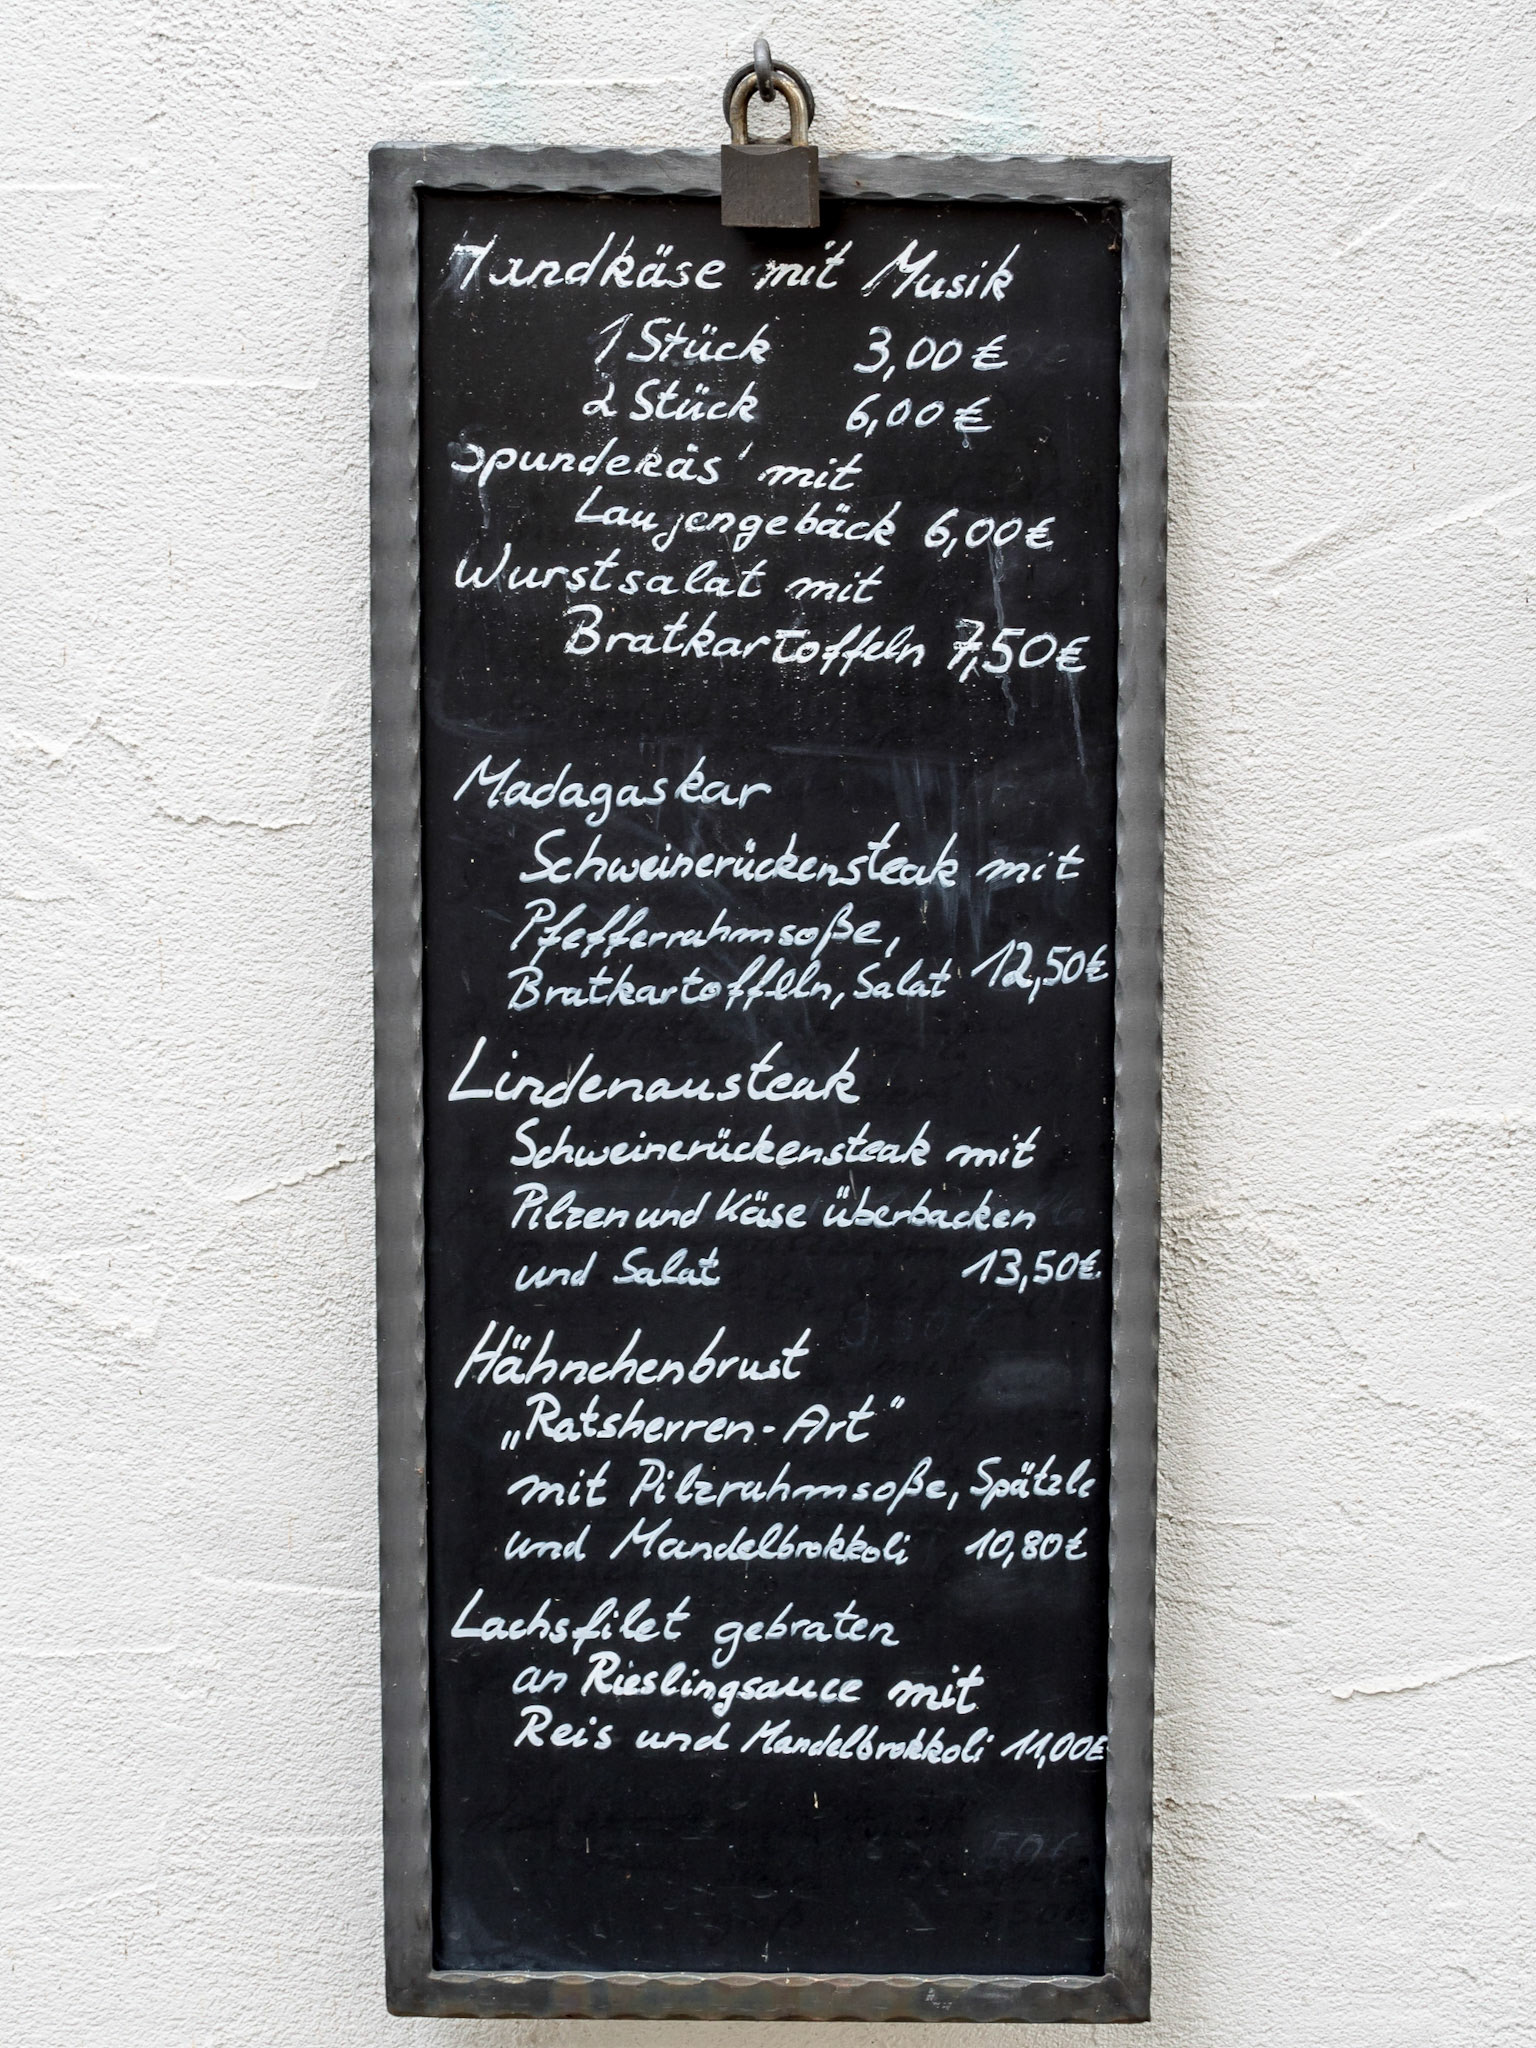 Handkäse mit Musik
1 Stück 3,00 €
2 Stück 6,00 €
Spundekäs' mit
Laugengebäck 6,00 €
Wurstsalat mit
Bratkartoffeln 7,50 €
Madagaskar
Schweinerückensteak mit
Pfefferrahmsoße,
Bratkartoffeln, Salat 12,50 €
Lindenausteak
Schweinerückensteak mit
Pilzen und Käse überbacken
und Salat 13,50 €
Hähnchenbrust
„Ratsherren-Art"
mit Pilzrahmsoße, Spätzle
und Mandelbrokkoli 10,80 €
Lachsfilet gebraten
an Rieslingsauce mit
Reis und Mandelbrokkoli 11,00 €